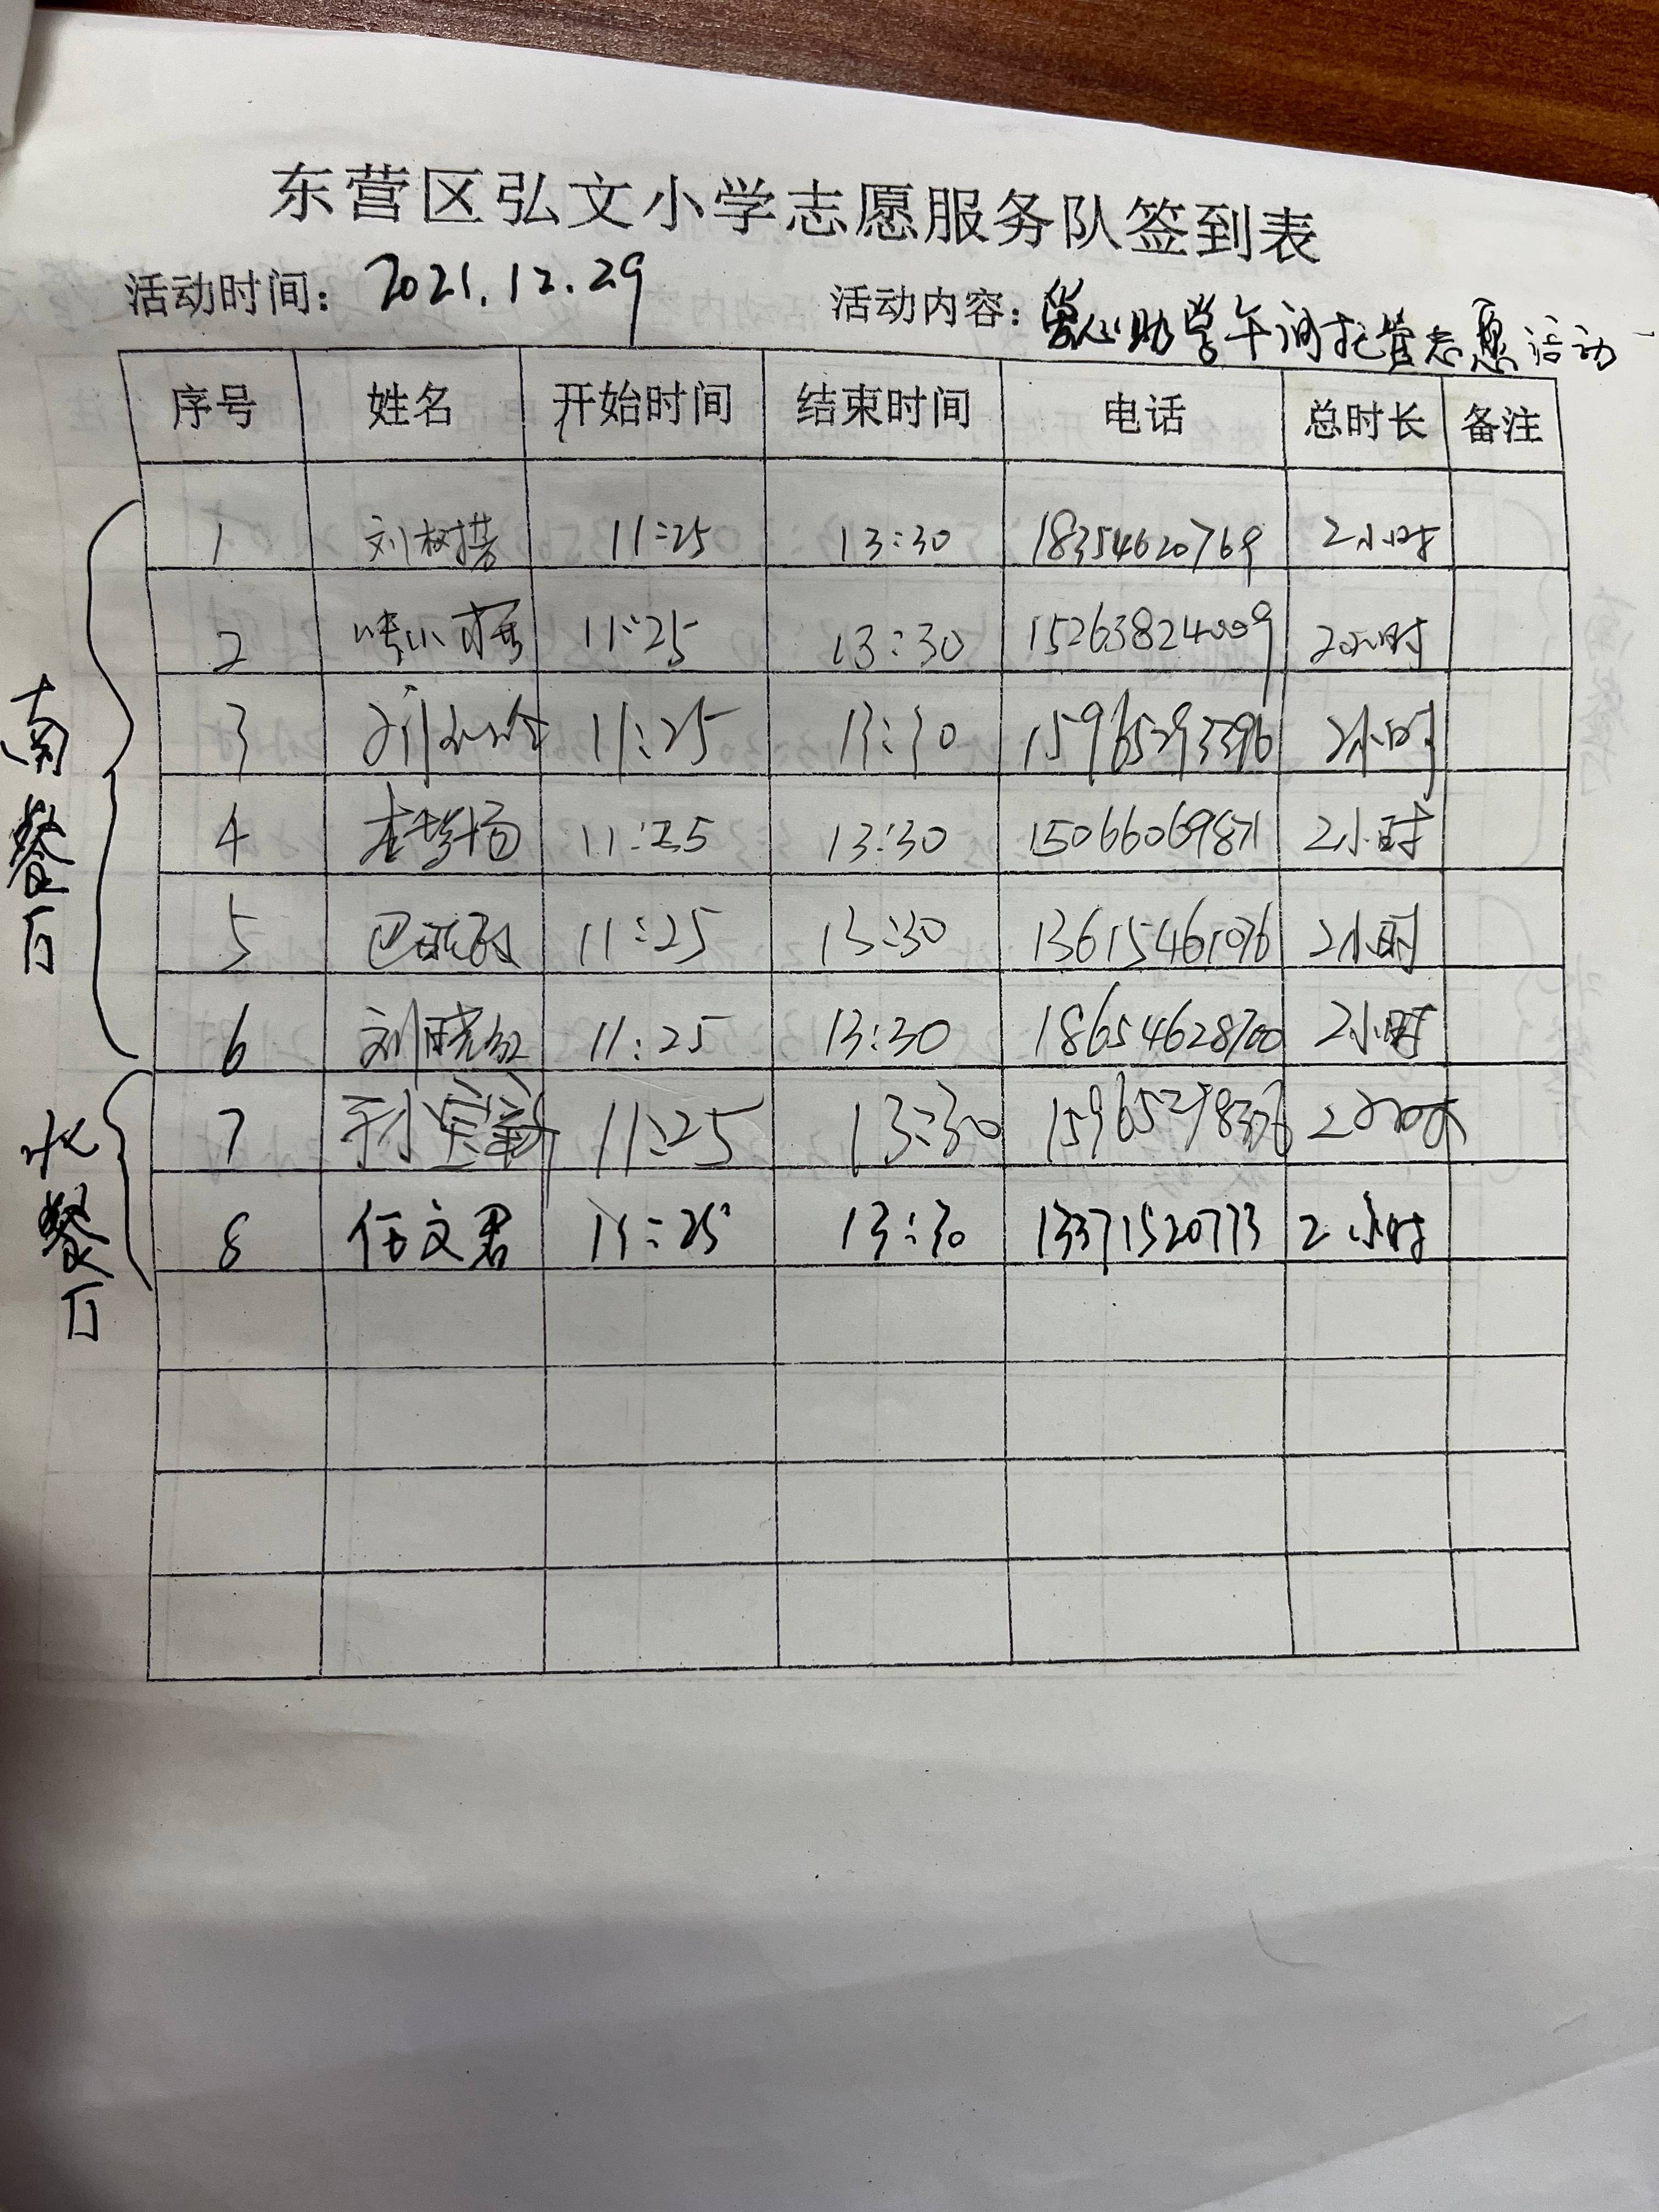 东营区弘文小学志愿服务队签到表
活动时间: 2021.12.29 活动内容: 爱心助学午间托管志愿活动
序号 姓名 开始时间 结束时间 电话 总时长 备注
南餐厅
1 刘树芳 11:25 13:30 18354620769 2小时
2 11:25 13:30 15263824009 2小时
3 11:25 13:30 15965293396 2小时
4 11:25 13:30 15066069871 2小时
5 11:25 13:30 13615461076 2小时
6 刘晓红 11:25 13:30 18654628700 2小时
北餐厅
7 11:25 13:30 2小时
8 任文君 11:25 13:30 13371520773 2小时